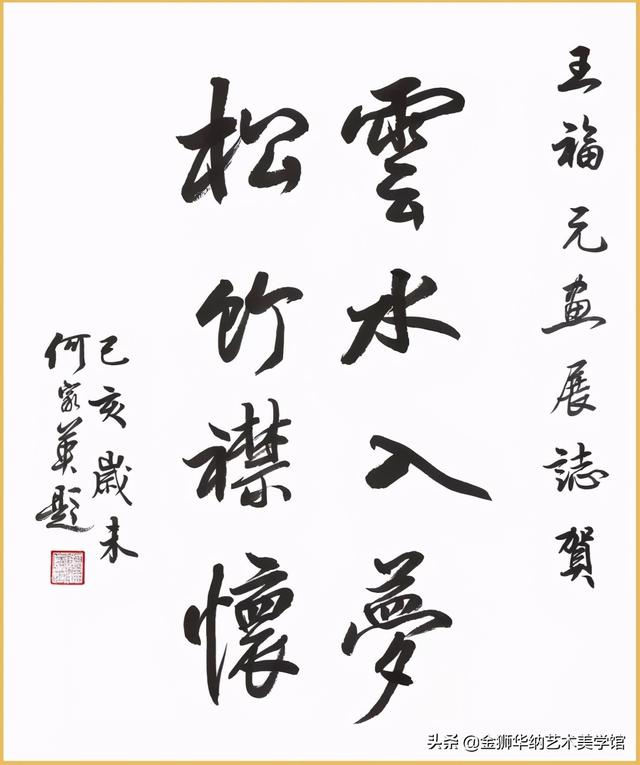 王福元画展誌賀
雲水入夢
松竹襟懷
己亥歲末
何家英题
头条 @金狮华纳艺术美学馆